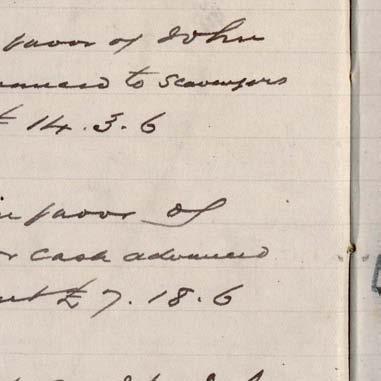 favor of John
to Scavengers
£ 14.3.6
in favor of
cash advanced
£ 7.18.6